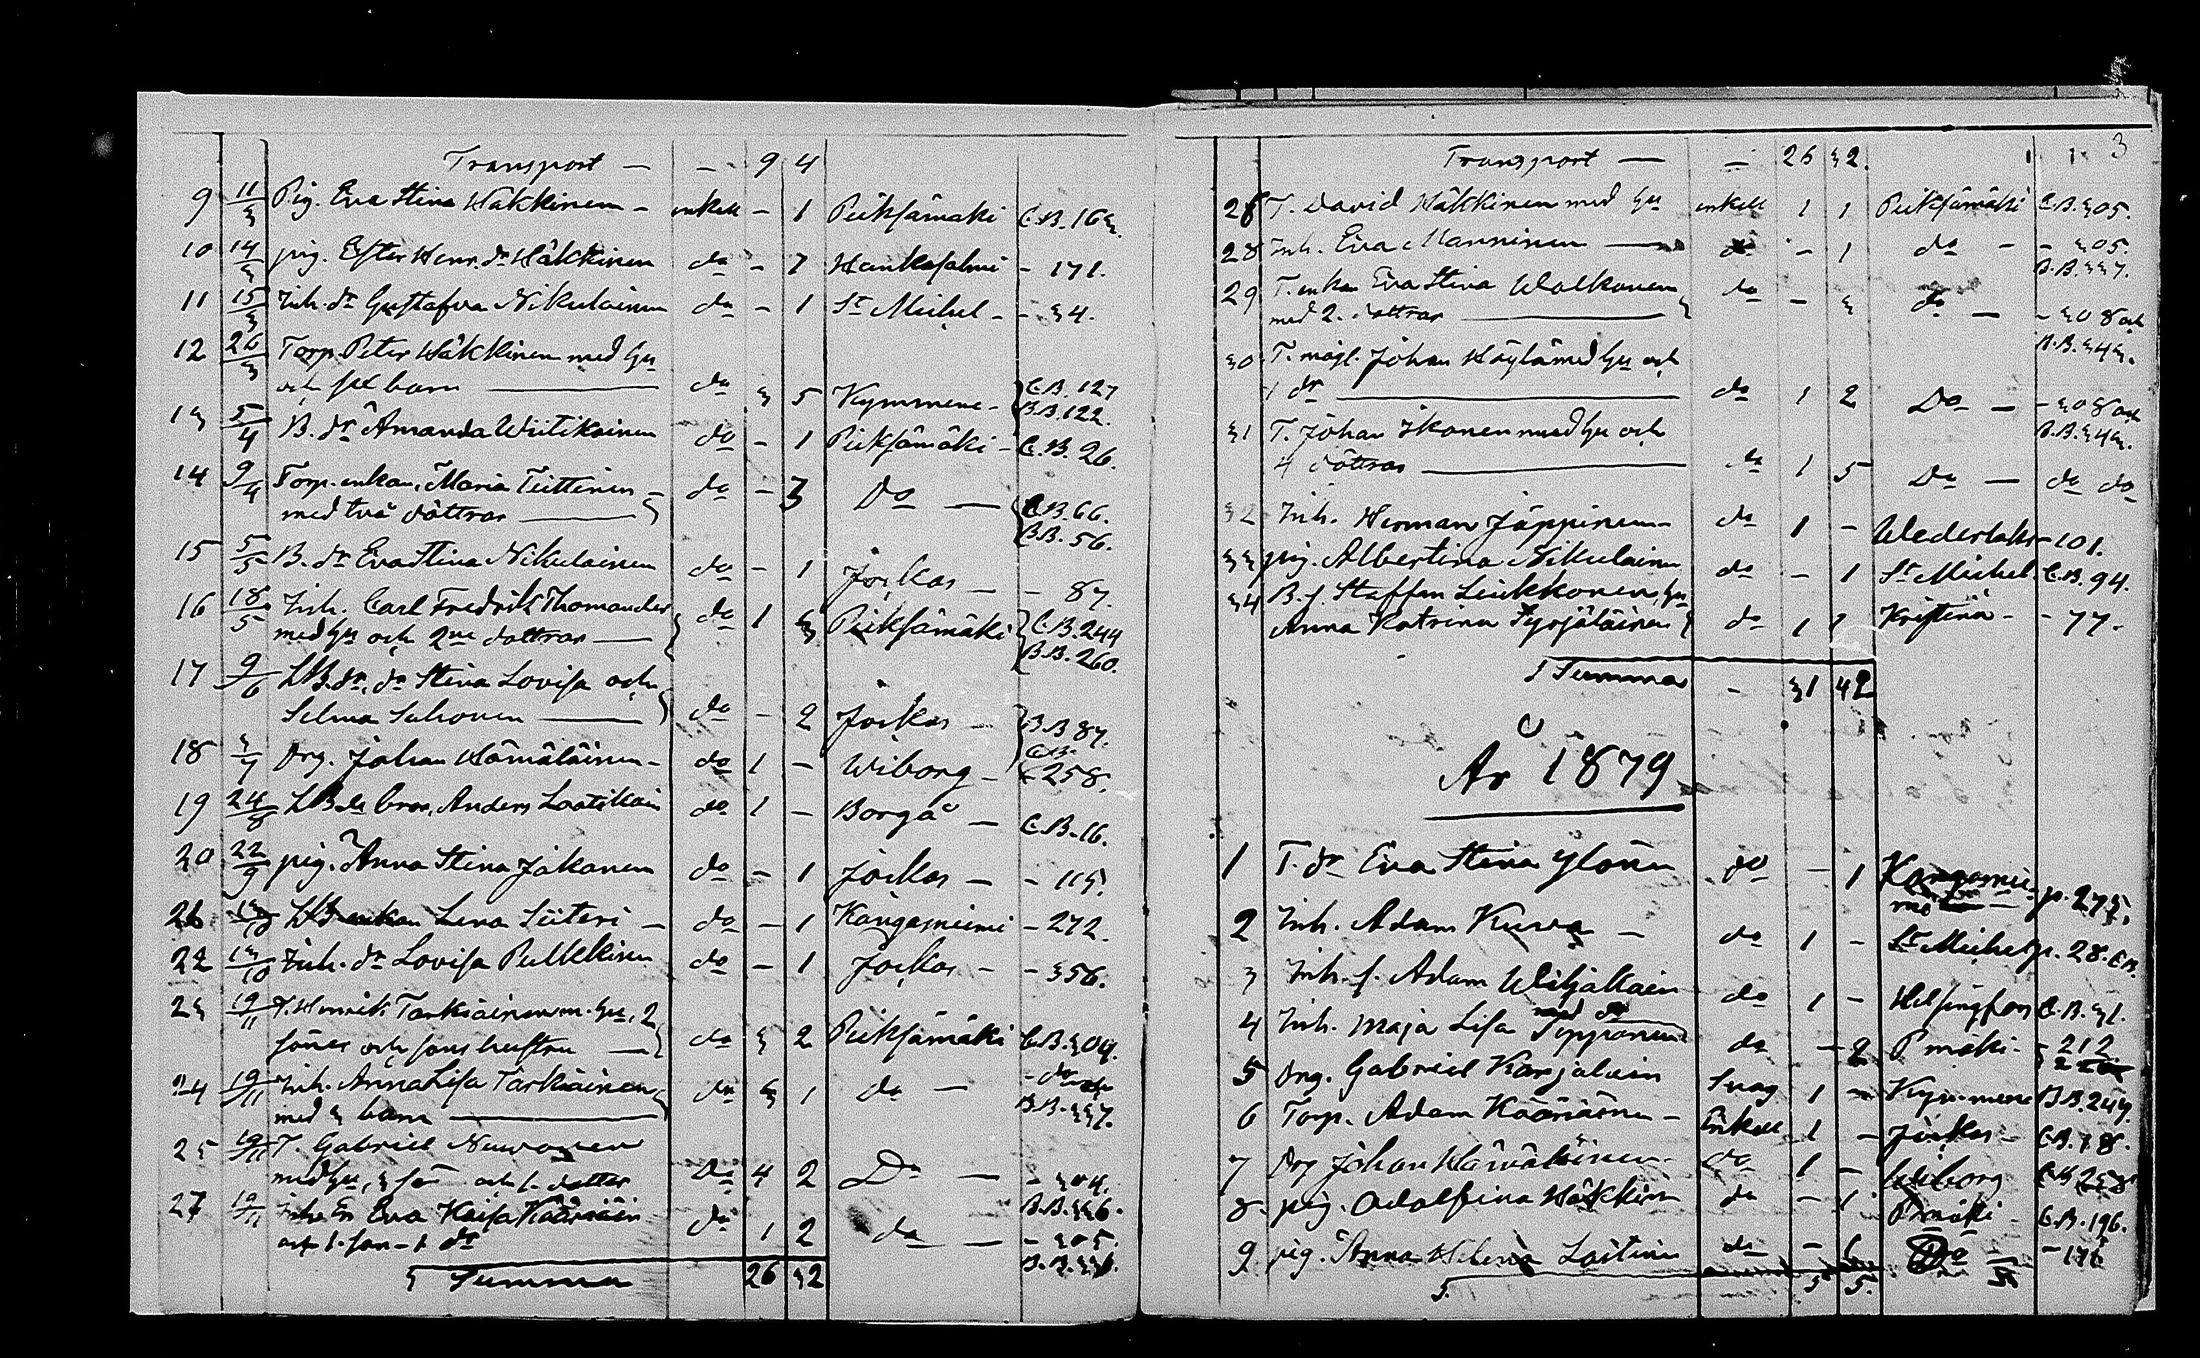 Transport — - 9 4
9 11/3 Pig. Eva Stina Häkkinen - enkell - 1 Pieksämäki C.B. 163.
10 14/3 pig. Ester Henr. dr Häkkinen do - 1 Hankasalmi - 171.
11 15/3 Inh. dr Gustafva Nikulainen do - 1 St Michel - - 34.
12 26/3 Torp. Peter Häkkinen med hu
och sex barn — do 3 5 Kymmene - C.B. 127
B.B. 122.
13 5/4 B. dr Amanda Wiitikainen do - 1 Pieksämäki - C.B. 26.
14 9/4 Torp. enkan Maria Tiittinen -
med två döttrar — do - 3 Do — C.B. 66.
B.B. 56.
15 5/5 B. dr Eva Stina Nikulainen do - 1 Jockas — - 87.
16 18/5 Inh. Carl Fredrik Thomander
med hu och 2ne dottrar — do 1 3 Pieksämäki C.B. 244
B.B. 260.
17 9/6 LB. dr, dr Stina Lovisa och
Selma Sahonen — do - 2 Jockas — B.B 87.
18 3/7 Drg. Johan Hämäläinen - do 1 - Wiborg - C.B. 258.
19 24/8 Anders Laatikain do 1 - Borgå — C.B. 16.
20 22/9 pig. Anna Stina Jakonen do - 1 Jockas — - 115.
LB enkan Lena Siiteri - do - 1 Kangasniemi - 272.
22 13/10 Inh. dr Lovisa Pulkkinen do - 1 Jockas - - 356.
23 19/11 T. Henrik Tarkiainen m. hu, 2
söner och sons hustru — do 3 2 Pieksämäki C.B. 304.
24 19/11 Inh. Anna Lisa Tarkiainen
med 3 barn — do 3 1 do — B.B. 337.
25 19/11 T. Gabriel Nuuvonen
med hu, 3 sön och 1. dotter Do 4 2 Do — - 304.
B.B. 336.
27 19/11 Eva Kaisa Kääriäin
1. son - 1 dr do 1 2 do — - 305.
Summa 26 32
3
Transport — - 26 32.
26 T. David Häkkinen med hu enkell 1 1 Pieksämäki C.B. 305.
28 Inh. Eva Manninen — do - 1 do - - 305.
B.B. 337.
29 T. enkan Eva Stina Walkonen
med 2. dottrar — do - 3 do — - 308 och
B.B. 343.
30 T. mågl. Johan Häylä med hu och
1 dr — do 1 2 Do — - 308 och
B.B. 343.
31 T. Johan Ikonen med hu och
4 döttrar — do 1 5 Do — do do
32 Inh. Herman Jäppinen - do 1 - Wederlaks - 101.
33 pig. Albertina Nikulainen do - 1 St Michel. C.B. 94.
34 B. s. Staffan Liukkonen, hu
Anna Katrina Syrjäläinen do 1 1 Kristina - - 77.
Summa - 31 42
År 1879
1 T. dr Eva Stina Ylönen do - 1 Kangasnie- p. 275.
2 Inh. Adam Kuwa - do 1 - St Michel p. 28. C.B.
3 Inh. s. Adam Wiljakain do 1 - Helsingfors C.B. 31.
4 Inh. Maja Lisa Tepponen med dr do - 2 P mäki - - 212
5 Drg. Gabriel Karjalain Svag 1 - Kymmene B.B. 244.
6 Torp. Adam Kääriäinen - Enkell 1 - Jockas - C.B. 18.
7 Drg Johan Hämäläinen - do 1 - Wiborg C.B. 258
8 pig. Adolfina Häkkin do - 1 Pmäki - C.B. 196.
9 pig. Anna Helena Laitinen do - 1 Do - 176
5 5.